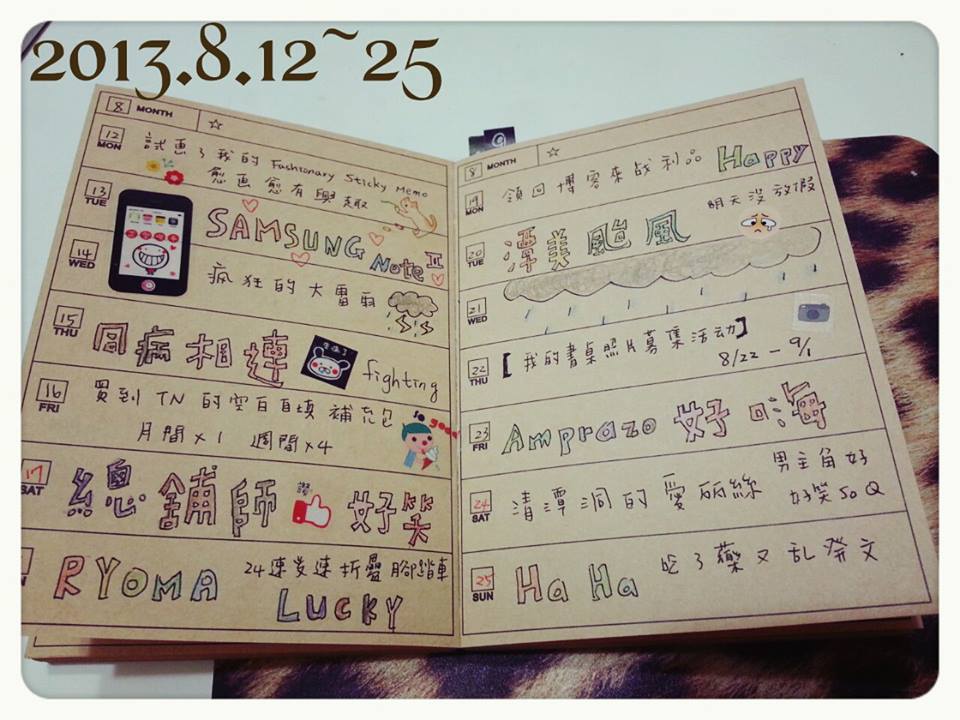 2013.8.12~25
8 MONTH ☆
12 MON 試畫了我的 Fashionary Sticky Memo
愈畫愈有興趣
13 TUE SAMSUNG Note II
14 WED 瘋狂的大雷雨
15 THU 同病相連 fighting
16 FRI 買到 TN 的空白自填補充包
月間x1 週間x4
so good
17 SAT 總舖師 讚 好笑
RYOMA 24速變速折疊腳踏車
LUCKY
9
8 MONTH ☆
19 MON 領回博客來戰利品 Happy
明天沒放假
20 TUE 潭美颱風
21 WED
22 THU [我的書桌照片募集活动]
8/22 - 9/1
23 FRI Amprazo 好口海
24 SAT 清潭洞的愛麗絲 男主角好
好笑 So Q
25 SUN Ha Ha 吃了藥又乱發文